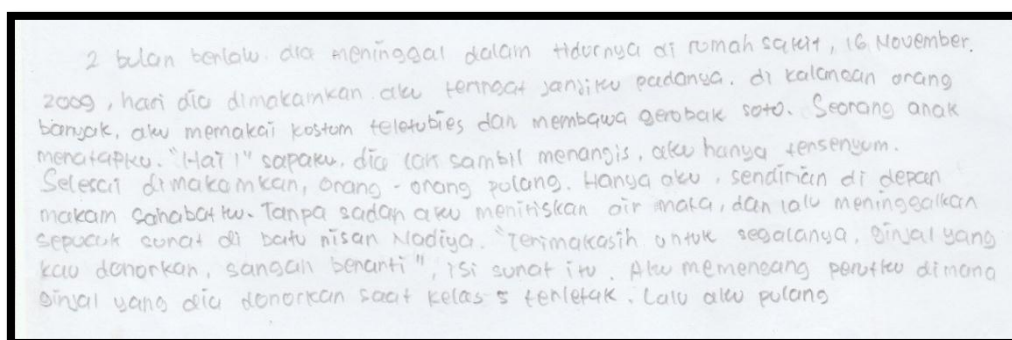 2 bulan berlalu. dia meninggal dalam tidurnya di rumah sakit, 16 November.
2009, hari dia dimakamkan. aku teringat janjiku padanya. di kalangan orang
banyak, aku memakai kostum teletubies dan membawa gerobak soto. Seorang anak
menatapku. "Hai!" sapaku. dia lari sambil menangis, aku hanya tersenyum.
Selesai dimakamkan, orang-orang pulang. Hanya aku, sendirian di depan
makam sahabatku. Tanpa sadar aku menitiskan air mata, dan lalu meninggalkan
sepucuk surat di batu nisan Nadiya. "Terimakasih untuk segalanya, Ginjal yang
kau donorkan, sangat berarti", isi surat itu. Aku memegang perutku dimana
Ginjal yang dia donorkan saat kelas 5 terletak. Lalu aku pulang